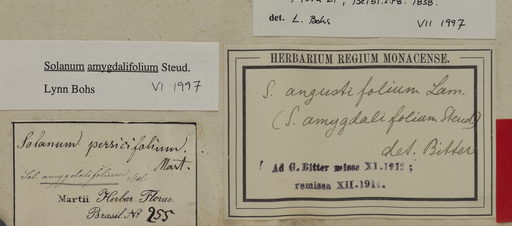 det. L. Bohs VII 1997
Solanum amygdalifolium Steud.
Lynn Bohs VI 1997
HERBARIUM REGIUM MONACENSE.
S. angustifolium Lam.
(S. amygdalifolium Steud)
det. Bitter
Ad G. Bitter misse XI.1912;
remissa XII.1914.
Solanum persicifolium.
Mart.
Sol. amygdalifolium
Martii Herbar. Florae
Brasil. No 255